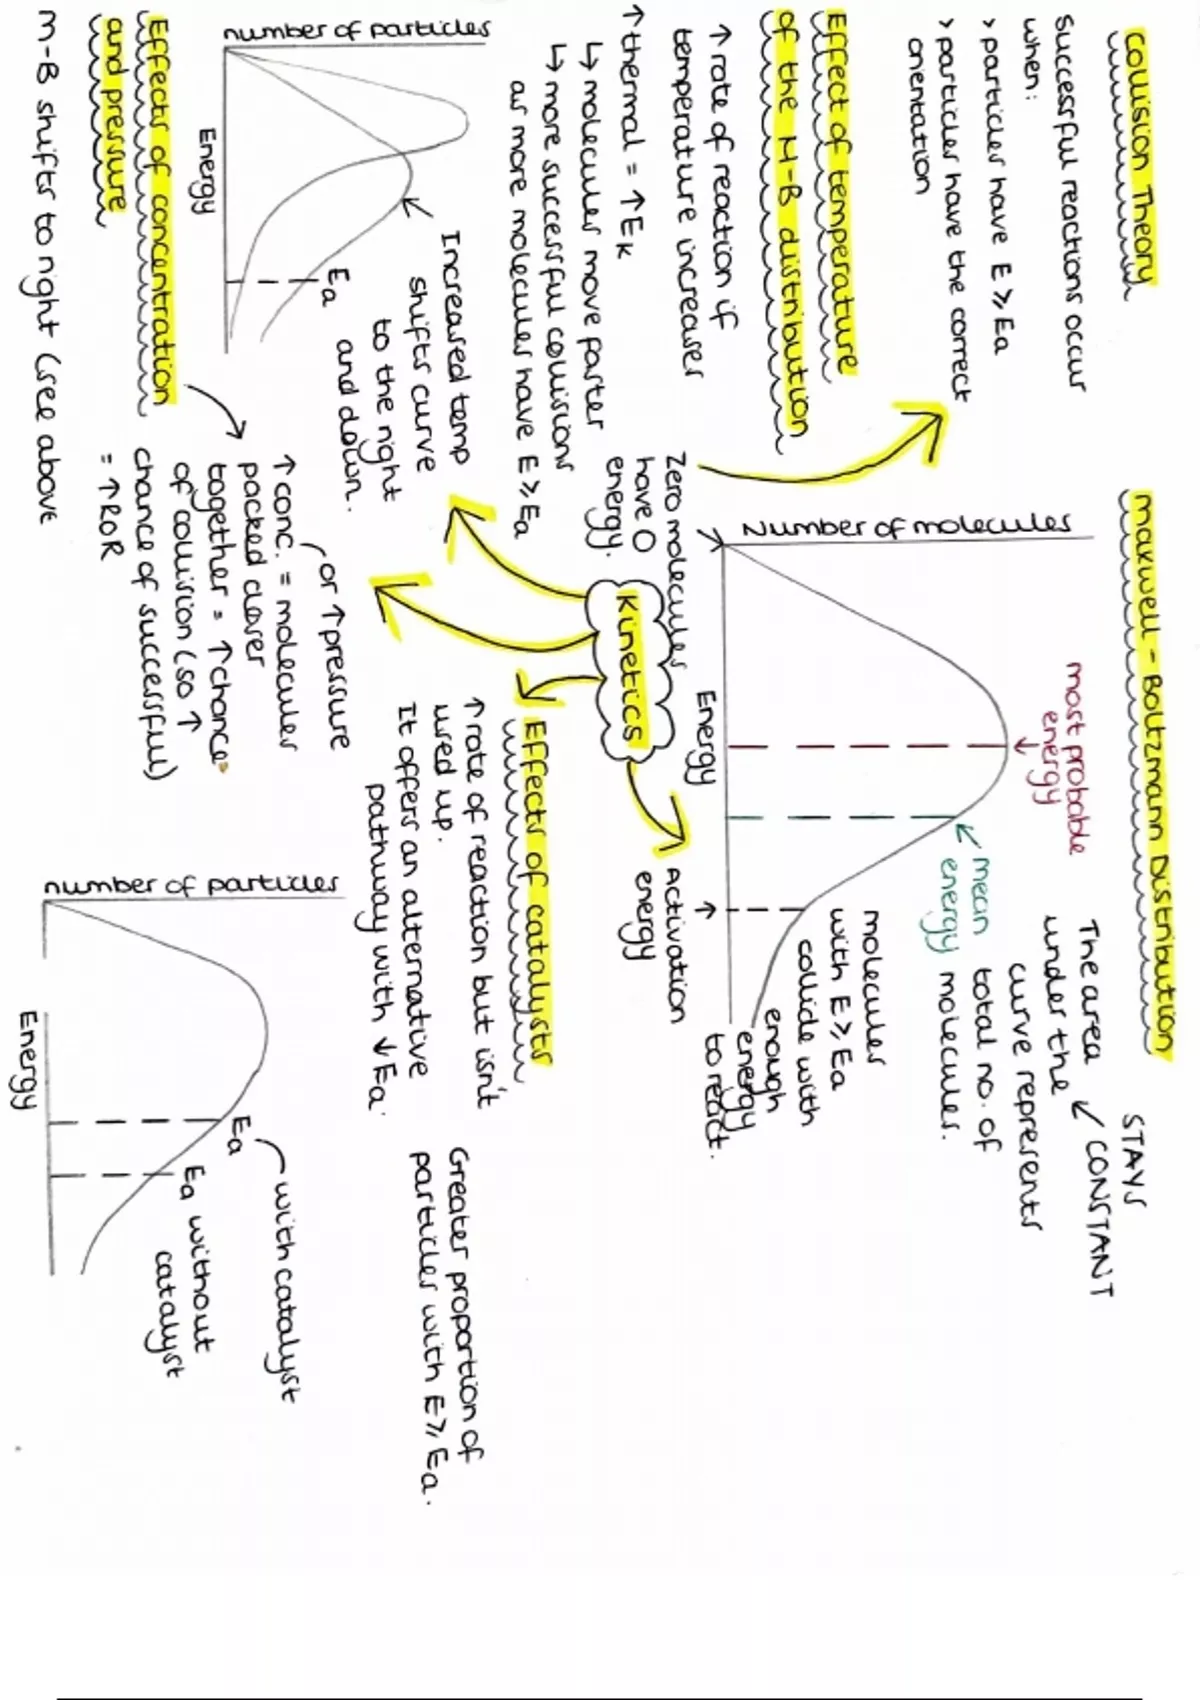 Collision Theory
Successful reactions occur
when:
> particles have E ⩾ Ea
> particles have the correct
orientation
Effect of temperature
of the M-B distribution
↑ rate of reaction if
temperature increases
↑ thermal = ↑ Ek
↳ molecules move faster
↳ more successful collisions
as more molecules have E ⩾ Ea
number of particles
Energy
Ea
Increased temp
shifts curve
to the right
and down.
Effects of concentration
and pressure
M-B shifts to right (see above
or ↑ pressure
↑ conc. = molecules
packed closer
together = ↑ chance
of collision (so ↑
chance of successful)
= ↑ ROR
Kinetics
Maxwell - Boltzmann Distribution
Number of molecules
Zero molecules
have 0
energy.
Energy
most probable
energy
mean
energy
The area
under the
curve represents
total no. of
molecules.
STAYS
CONSTANT
molecules
with E ⩾ Ea
collide with
enough
energy
to react.
Activation
energy
Effects of catalysts
↑ rate of reaction but isn't
used up.
It offers an alternative
pathway with ↓ Ea.
Greater proportion of
particles with E ⩾ Ea.
number of particles
Energy
Ea
with catalyst
Ea without
catalyst